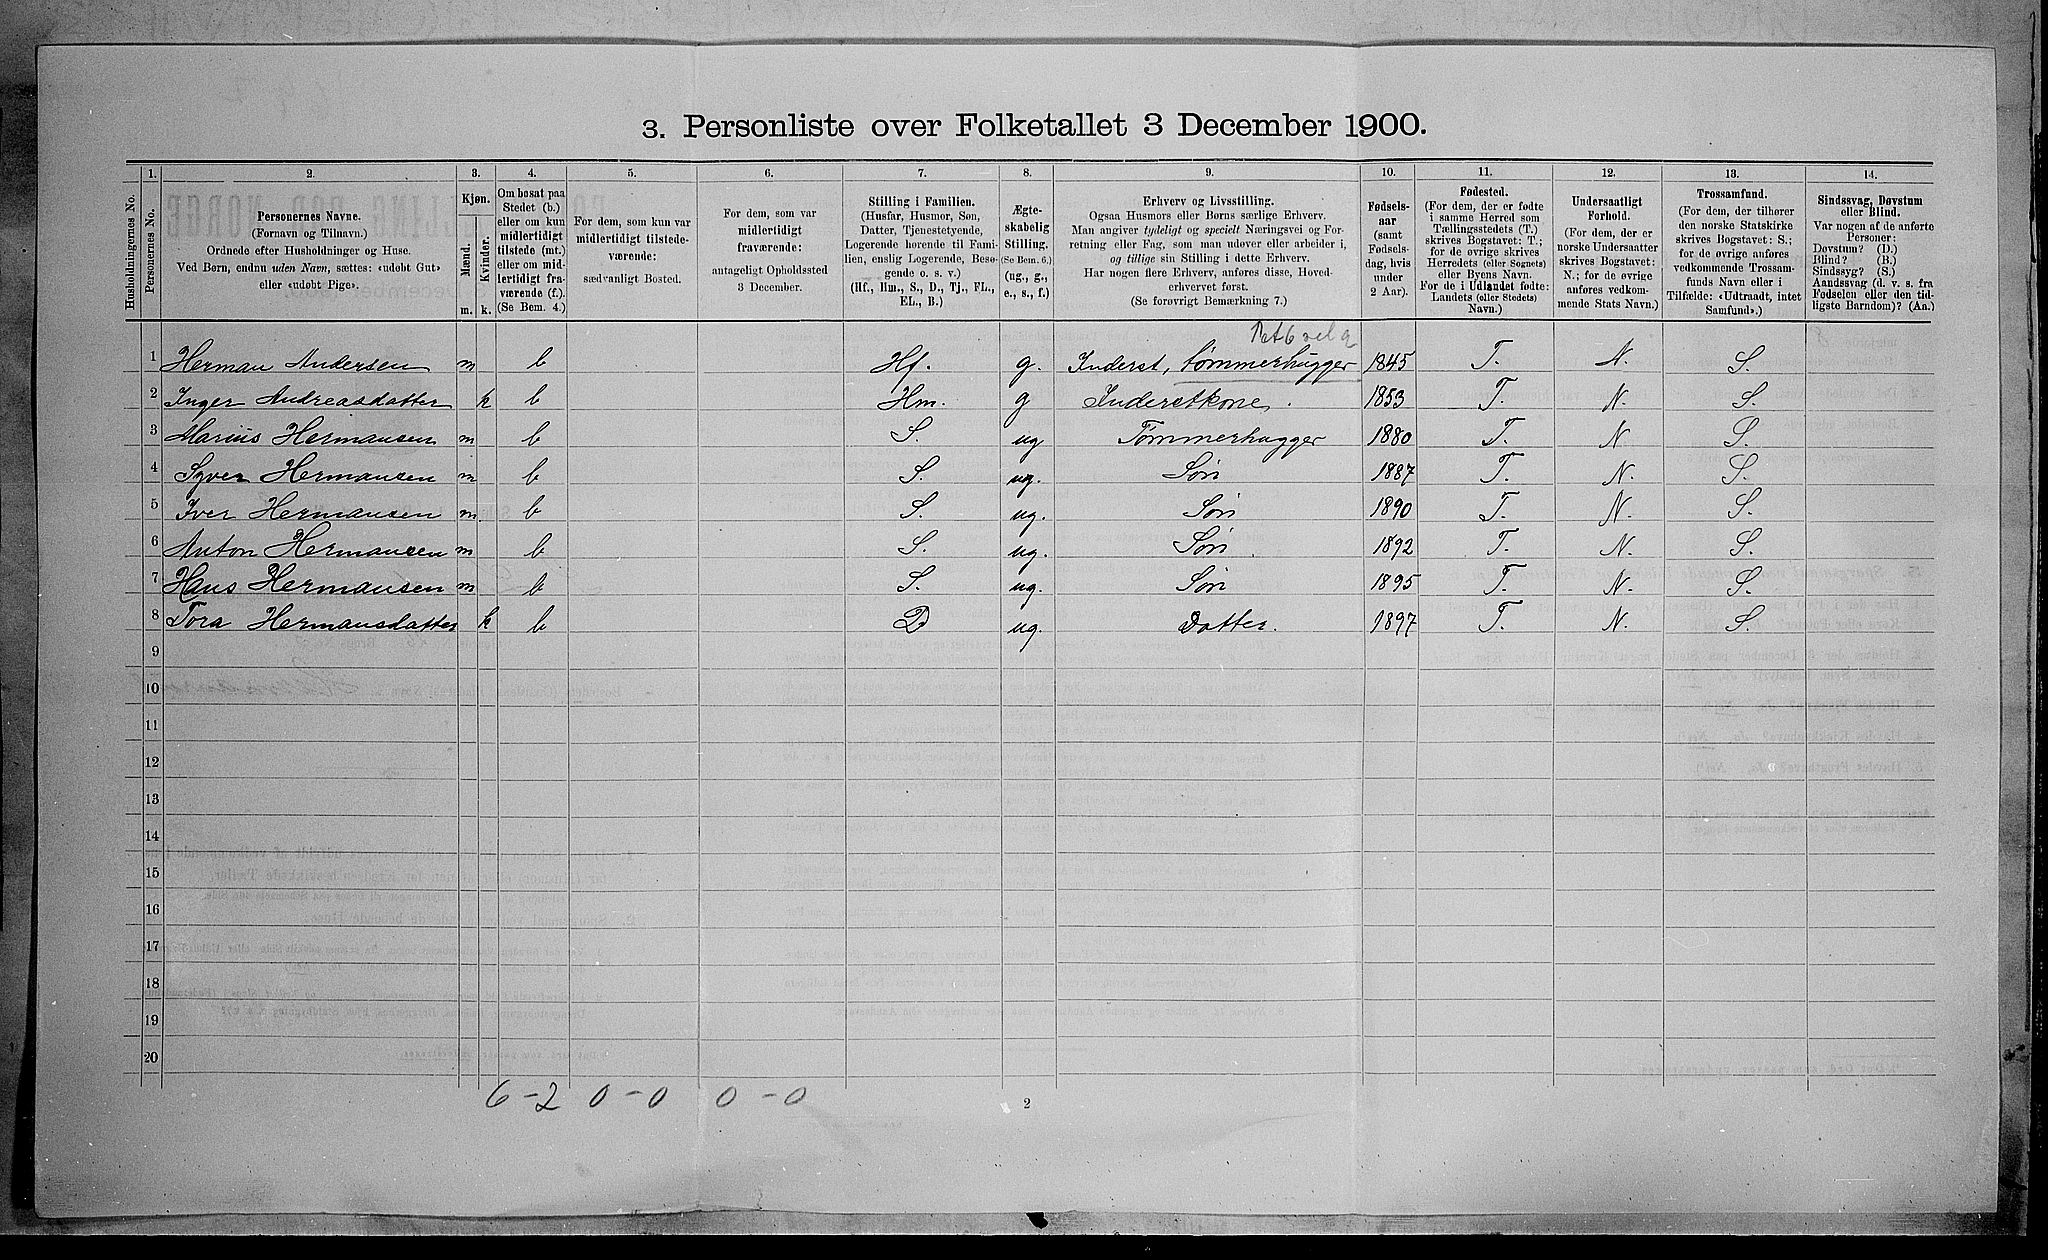 3. Personliste over Folketallet 3 December 1900.
1. 2. 3. 4. 5. 6. 7. 8. 9. 10. 11. 12. 13. 14.
Husholdningernes No.
Personernes No.
Personernes Navne.
(Fornavn og Tilnavn.)
Ordnede efter Husholdninger og Huse.
Ved Børn, endnu uden Navn, sættes: «udøbt Gut»
eller «udøbt Pige».
Kjøn.
Mænd.
Kvinder.
m. k.
Om bosat paa
Stedet (b.)
eller om kun
midlertidigt
tilstede (mt.)
eller om mid-
lertidigt fra-
værende (f.)
(Se Bem. 4.)
For dem, som kun var
midlertidigt tilstede-
værende:
sædvanligt Bosted.
For dem, som var
midlertidigt
fraværende:
antageligt Opholdssted
3 December.
Stilling i Familien.
(Husfar, Husmor, Søn,
Datter, Tjenestetyende,
Logerende hørende til Fami-
lien, enslig Logerende, Besø-
gende o. s. v.)
(Hf., Hm., S., D., Tj., FL.,
EL., B.)
Ægte-
skabelig
Stilling.
(Se Bem. 6.)
(ug., g.,
e., s., f.)
Erhverv og Livsstilling.
Ogsaa Husmors eller Børns særlige Erhverv.
Man angiver tydeligt og specielt Næringsvei og For-
retning eller Fag, som man udøver eller arbeider i,
og tillige sin Stilling i dette Erhverv.
Har nogen flere Erhverv, anføres disse, Hoved-
erhvervet først.
(Se forøvrigt Bemærkning 7.)
Fødsels-
aar
(samt
Fødsels-
dag, hvis
under
2 Aar).
Fødested.
(For dem, der er fødte
i samme Herred som
Tællingsstedets (T.)
skrives Bogstavet: T.;
for de øvrige skrives
Herredets (eller Sognets)
eller Byens Navn.
For de i Udlandet fødte:
Landets (eller Stedets)
Navn.)
Undersaatligt
Forhold.
(For dem, der er
norske Undersaatter
skrives Bogstavet:
N.; for de øvrige
anføres vedkom-
mende Stats Navn.)
Trossamfund.
(For dem, der tilhører
den norske Statskirke
skrives Bogstavet: S.;
for de øvrige anføres
vedkommende Trossam-
funds Navn eller i
Tilfælde: «Udtraadt, intet
Samfund».)
Sindssvag, Døvstum
eller Blind.
Var nogen af de anførte
Personer:
Døvstum? (D.)
Blind? (B.)
Sindssyg? (S.)
Aandssvag (d. v. s. fra
Fødselen eller den tid-
ligste Barndom)? (Aa.)
1 Herman Andersen m b Hf. g. Inderst, tømmerhugger 1845 T. N. S.
2 Inger Andreasdatter k b Hm. g Inderstkone. 1853 T. N. S.
3 Marius Hermansen m b S. ug Tømmerhugger 1880 T. N S.
4 Syver Hermansen m b S. ug. Søn 1887 T. N. S.
5 Iver Hermansen m. b S. ug. Søn 1890 T. N. S.
6 Anton Hermansen m b S. ug. Søn. 1892 T. N. S.
7 Hans Hermansen m b S. ug. Søn 1895 T. N. S.
8 Tora Hermansdatter k b D ug. Datter. 1897 T. N. S.
9
10
11
12
13
14
15
16
17
18
19
20
6 - 2 0 - 0 0 - 0
2